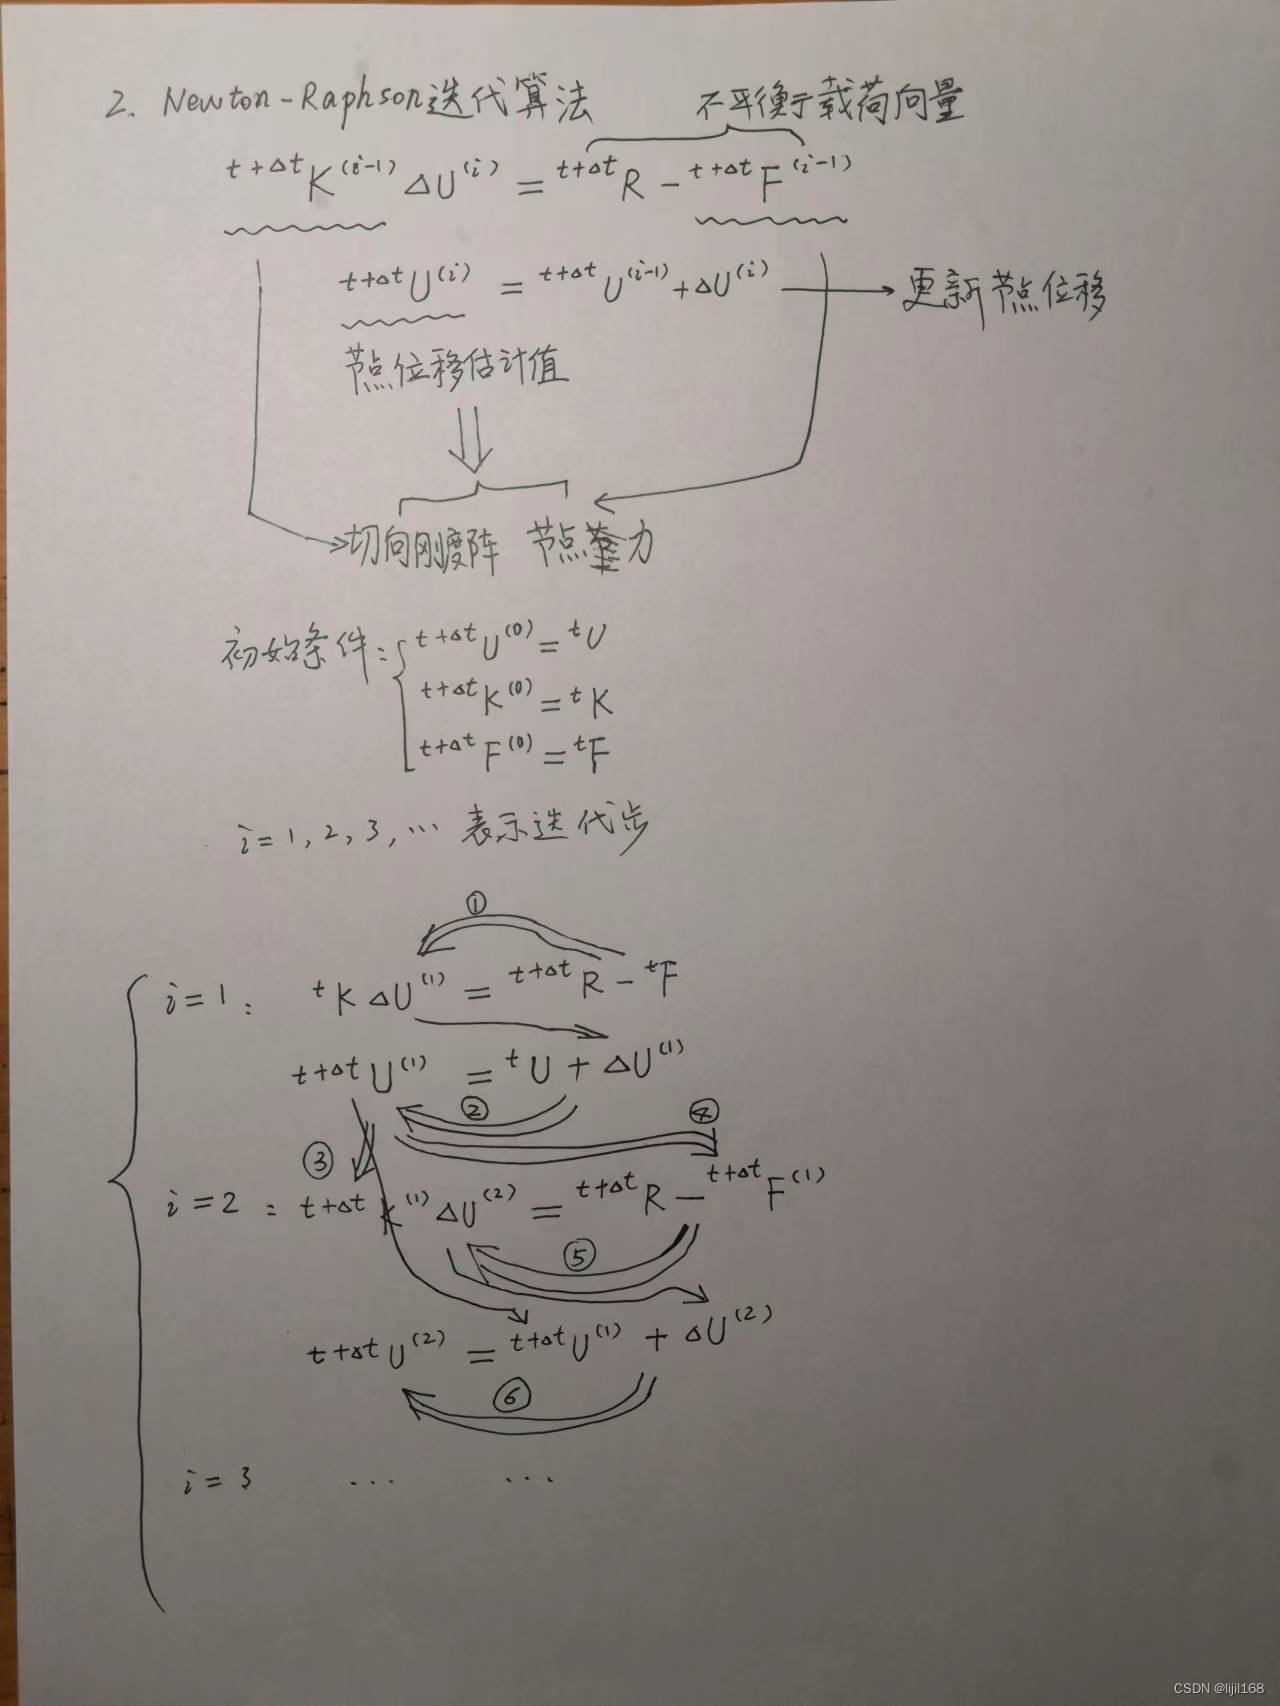 2. Newton-Raphson迭代算法 不平衡载荷向量
t+Δt K(i-1) ΔU(i) = t+Δt R - t+Δt F(i-1)
t+Δt U(i) = t+Δt U(i-1) + ΔU(i) → 更新节点位移
节点位移估计值
切向刚度阵 节点力
初始条件: { t+Δt U(0) = t U
t+Δt K(0) = t K
t+Δt F(0) = t F
i=1, 2, 3, … 表示迭代步
①
i=1: t K ΔU(1) = t+Δt R - t F
t+Δt U(1) = t U + ΔU(1)
② ④
③
i=2: t+Δt K(1) ΔU(2) = t+Δt R - t+Δt F(1)
⑤
t+Δt U(2) = t+Δt U(1) + ΔU(2)
⑥
i=3 … …
CSDN @lijil168